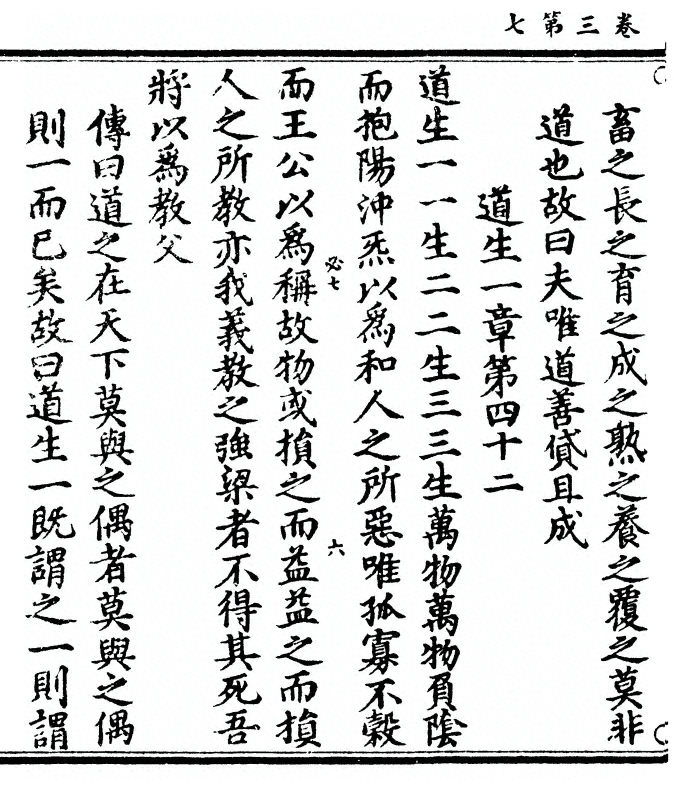 卷三第七
畜之長之育之成之熟之養之覆之莫非
道也故曰夫唯道善貸且成
道生一章第四十二
道生一一生二二生三三生萬物萬物負陰
而抱陽沖炁以爲和人之所惡唯孤寡不糓
而王公以爲稱故物或損之而益益之而損
人之所教亦我義教之強梁者不得其死吾
將以爲教父
傳曰道之在天下莫與之偶者莫與之偶
則一而已矣故曰道生一既謂之一則謂
必七
六